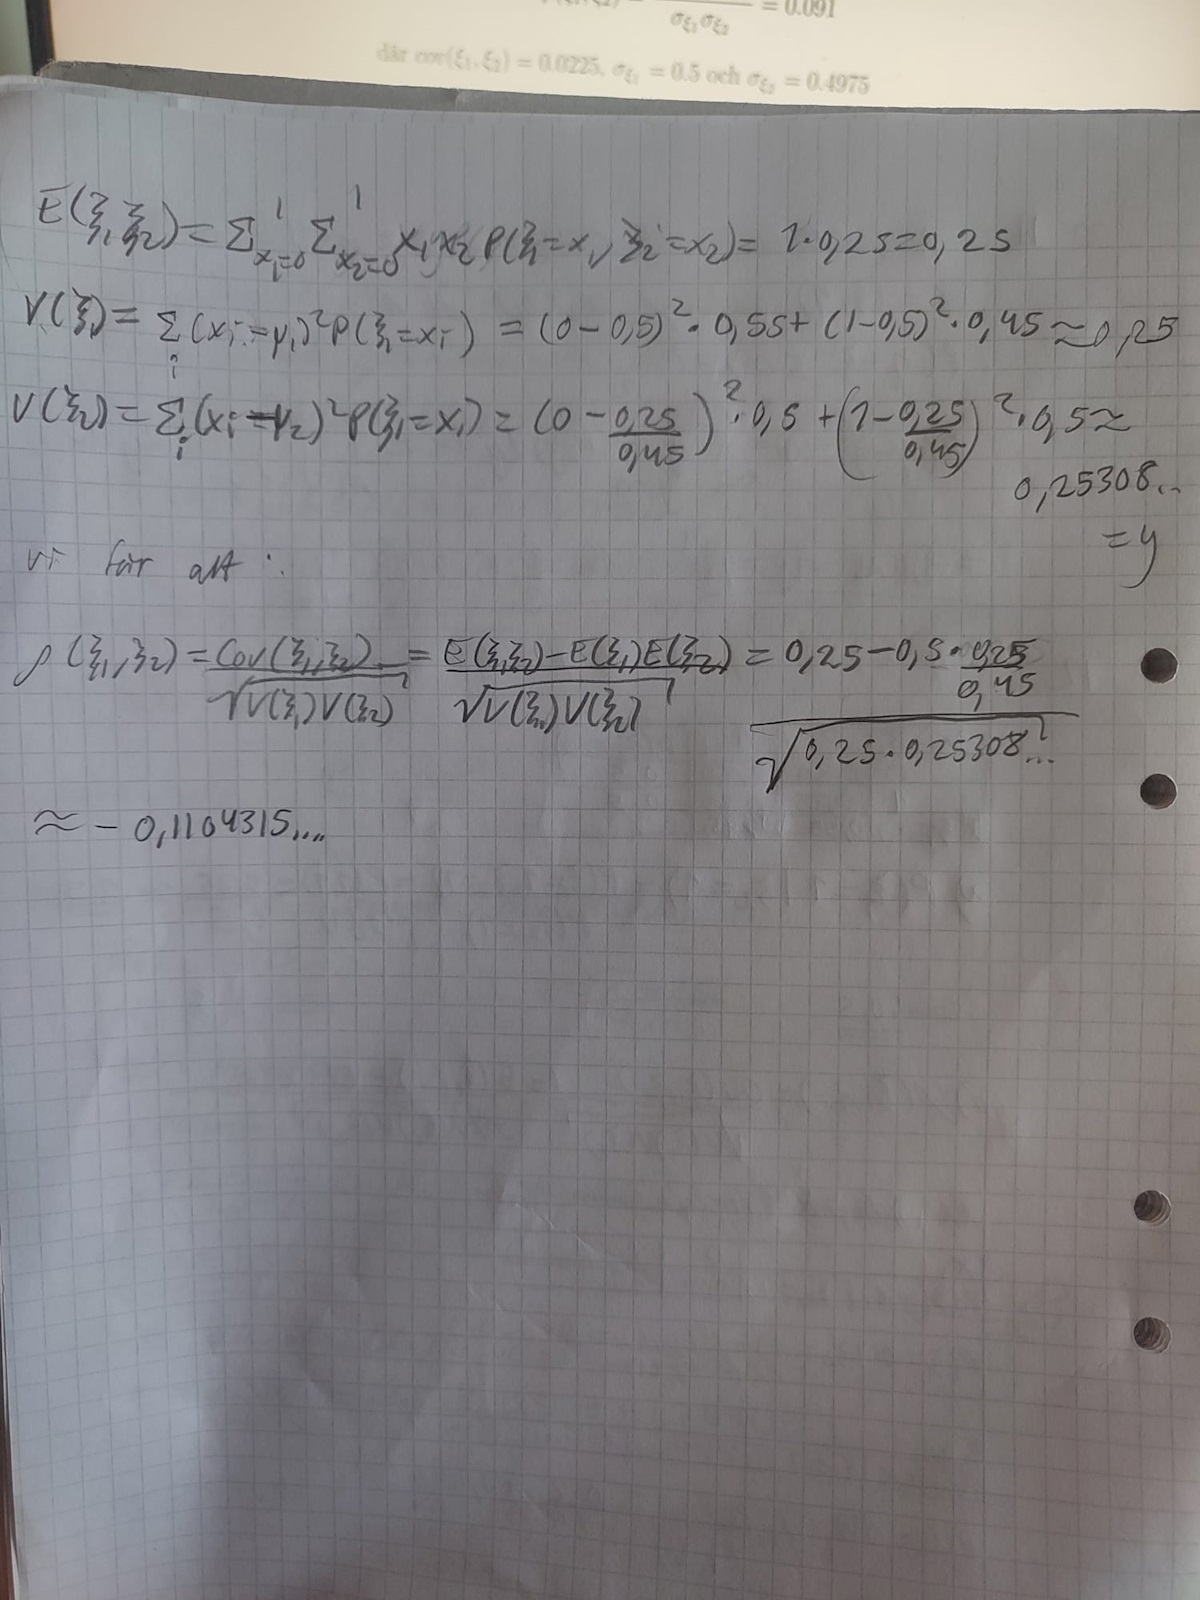 = 0.091
σξ₁σξ₂
där cov(ξ₁, ξ₂) = 0.0225, σξ₁ = 0.5 och σξ₂ = 0.4975
E(ξ₁ξ₂) = Σ_{x₁=0}^1 Σ_{x₂=0}^1 x₁x₂ P(ξ₁=x₁, ξ₂=x₂) = 1·0,25=0,25
V(ξ₁) = Σ_i (x_i - μ₁)² P(ξ₁=x_i) = (0-0,5)²·0,55 + (1-0,5)²·0,45 ≈ 0,25
V(ξ₂) = Σ_i (x_i - μ₂)² P(ξ₁=x_i) = (0 - 0,25/0,45)²·0,5 + (1 - 0,25/0,45)²·0,5 ≈
0,25308..
= y
vi får att :
ρ(ξ₁,ξ₂) = Cov(ξ₁,ξ₂)/√(V(ξ₁)V(ξ₂)) = (E(ξ₁ξ₂) - E(ξ₁)E(ξ₂))/√(V(ξ₁)V(ξ₂)) = (0,25 - 0,5·0,25/0,45)/√(0,25·0,25308...)
≈ - 0,1104315....